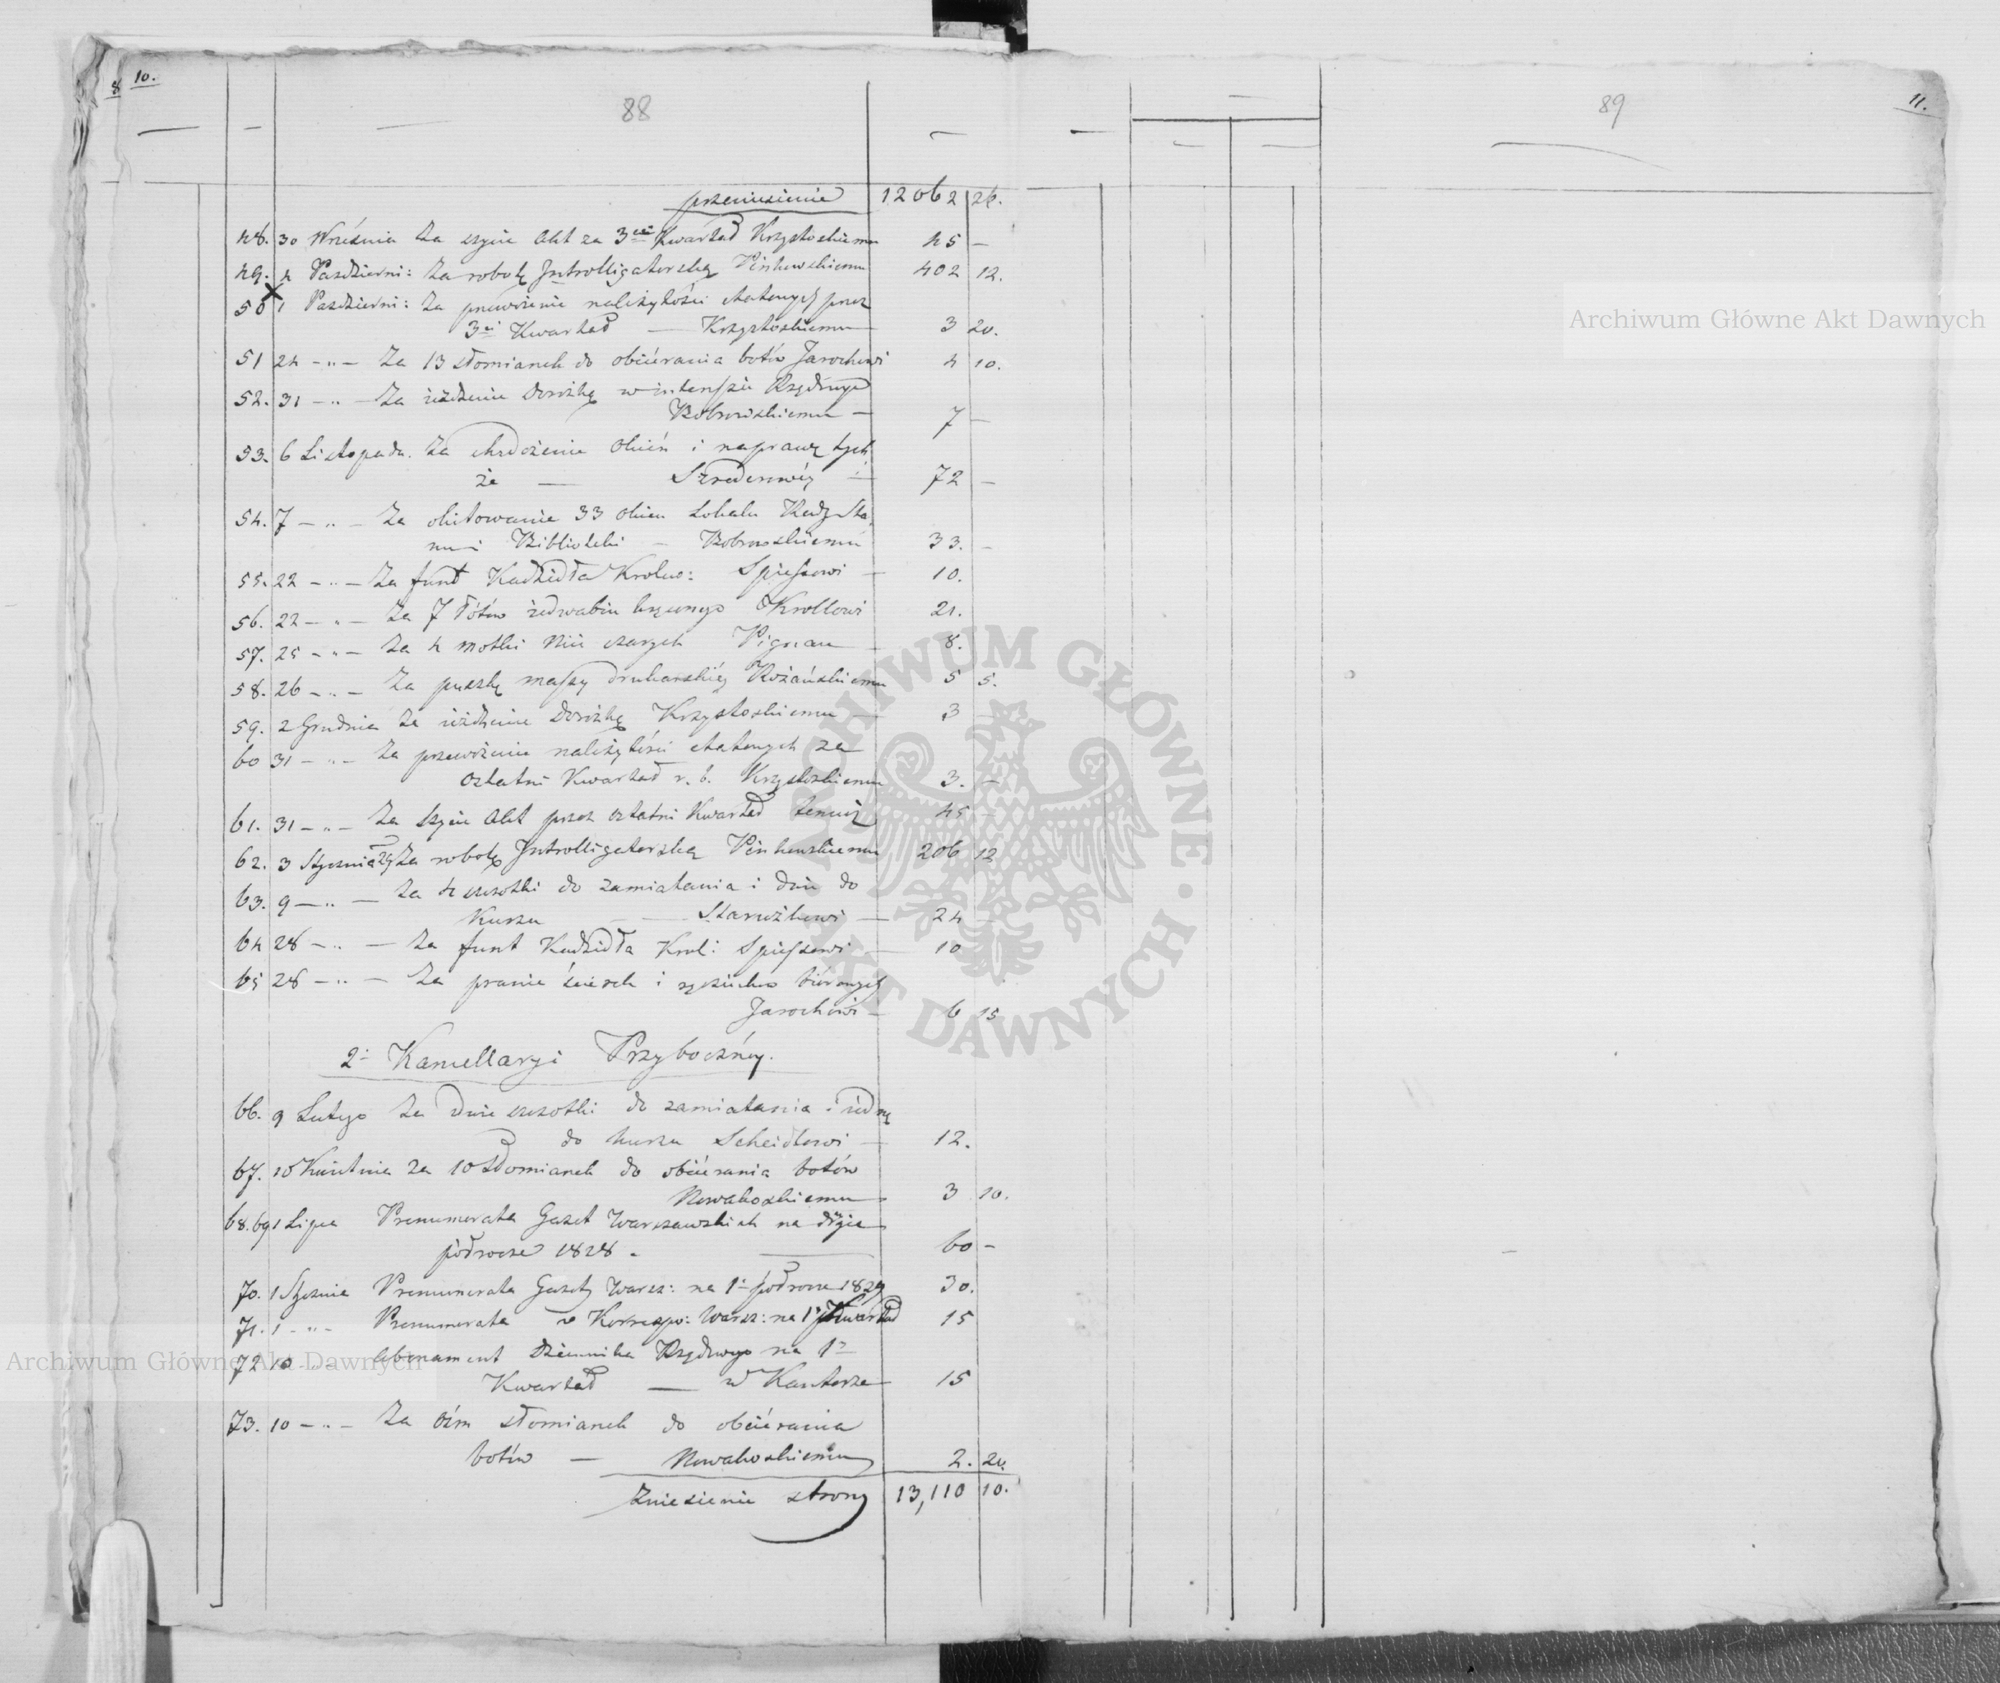 8 10.
88
przeniesienie 12062 26.
48. 30 Września Za szycie Akt za 3ci Kwartał Krzystoskiemu 45 —
49. 4 Październi: Za robotę Introlligatorską Pinkowskiemu 402 12.
50 1 Październi: Za przewożenie należytości etatowych przez
3ci Kwartał — Krzystoskiemu 3 20.
51 24 — „ — Za 13 słomianek do obcierania botów Jarochowi 4 10.
52. 31 — „ — Za jeżdżenie Dorożką w interesie Rządowym
Bobrowskiemu — 7 —
53. 6 Listopada. Za okien i naprawę tych
że — 72 —
54. 7 — „ — Za okitowanie 33 okien Lokalu
Biblioteki — Bobrowskiemu 33. —
55. 22 — „ — Za funt Kadzidła Krolew: Spiessowi — 10.
56. 22 — „ — Za 7 łótów jedwabiu Krollowi 21.
57. 25 — „ — Za 4 motki Nici czarnych 8.
58. 26 — „ — Za puszkę massy drukarskiéy Rożańskiemu 5 5.
59. 2 Grudnia Za jeżdżenie Dorożką Krzystoskiemu — 3 —
60 31 — „ — Za przewożenie należytości etatowych za
ostatni Kwartał r. b. Krzystoskiemu 3. —
61. 31 — „ — Za szycie Akt przez ostatni Kwartał temuż 45 —
62. 3 Stycznia 29 Za robotę Introlligatorską Pinkowskiemu 206 12
63. 9 — „ — Za 4 szczotki do zamiatania i dwie do
Kurzu — Starużkowi — 24 —
64 28 — „ — Za funt Kadzidła Krol: Spiessowi — 10
65 28 — „ — Za pranie ścierek i
Jarochowi — 6 15
2o Kancellaryi Przybocznéy.
66. 9 Lutego Za Dwie szczotki do zamiatania i jedną
do kurzu Scheidlowi — 12.
67. 10 Kwietnia za 10 Słomianek do obcierania botów
Nowakoskiemu 3 10.
68. 69 1 Lipca Prenumerata Gazet Warszawskich na drugie
półrocze 1828. — 60 —
70. 1 Stycznia Prenumerata Gazety Warsz: na 1e półrocze 1829 30.
71. 1 — „ — Prenumerata Korrespo: Warsz: na 1y Kwartał 15
72 10 — „ — Abonament Dziennika Rządowego na 1y
Kwartał — w Kantorze 15
73. 10 — „ — Za ośm słomianek do obcierania
botów — Nowakoskiemu 2. 20.
Zniesienie strony 13,110 10.
89
11.
Archiwum Główne Akt Dawnych
ARCHIWUM GŁÓWNE • AKT DAWNYCH •
Archiwum Główne Akt Dawnych